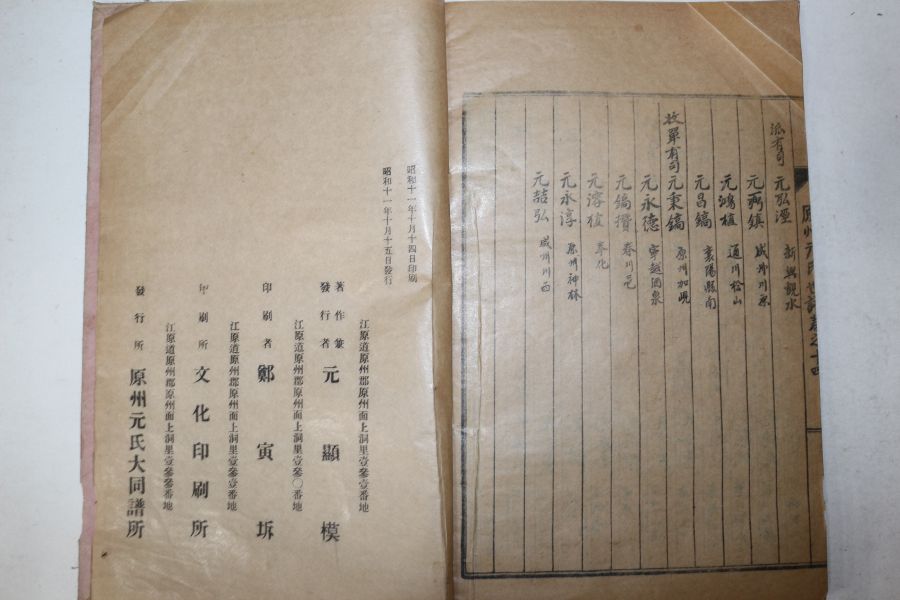 原州元氏世譜卷之十四
派有司
元弘溼 新興觀水
元
鎮
元鴻植 通川松山
元昌鎬 襄陽縣南
收單有司
元秉鎬 原州加峴
元永德 寧越酒泉
元鎬攢 春川邑
元溶植 奉化
元永淳 原州神林
元喆弘
昭和十一年十月十四日印刷
昭和十一年十月十五日發行
江原道原州郡原州面上洞里壹參壹番地
著作兼發行者 元顯模
江原道原州郡原州面上洞里壹參〇番地
印刷者 鄭寅坼
江原道原州郡原州面上洞里壹參壹番地
印刷所 文化印刷所
江原道原州郡原州面上洞里壹參參番地
發行所 原州元氏大同譜所